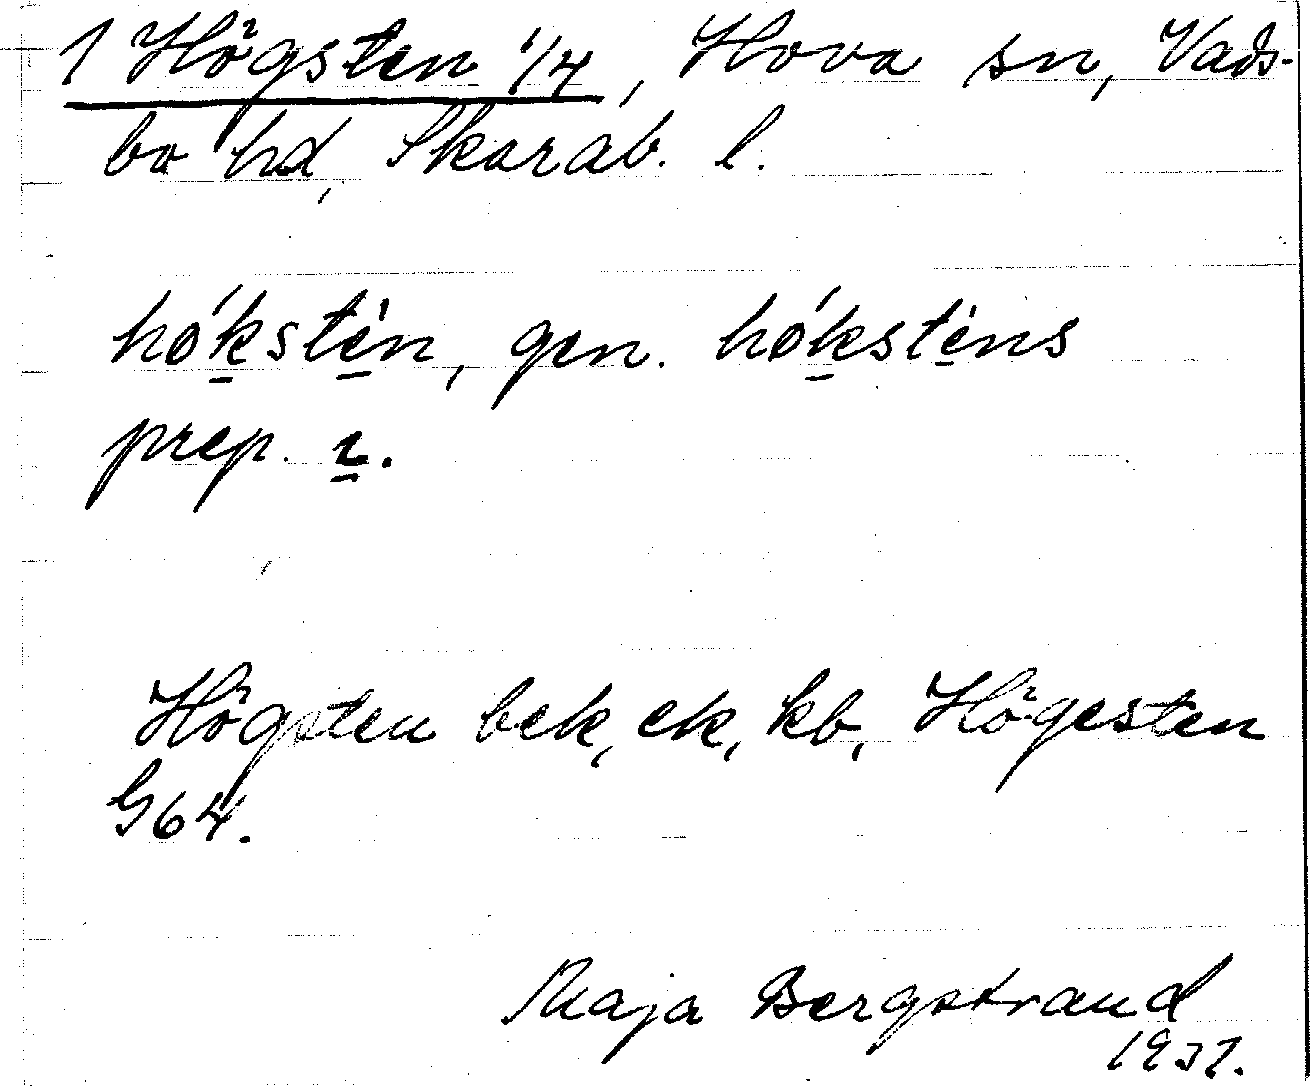 1 Högsten 1/4, Hova sn, Vads-
bo hd, Skarab. l.
hókstèn, gen. hókstèns
prep. ɩ.
Högsten bek, ek, kb, Högesten
G64.
Maja Bergstrand
1937.